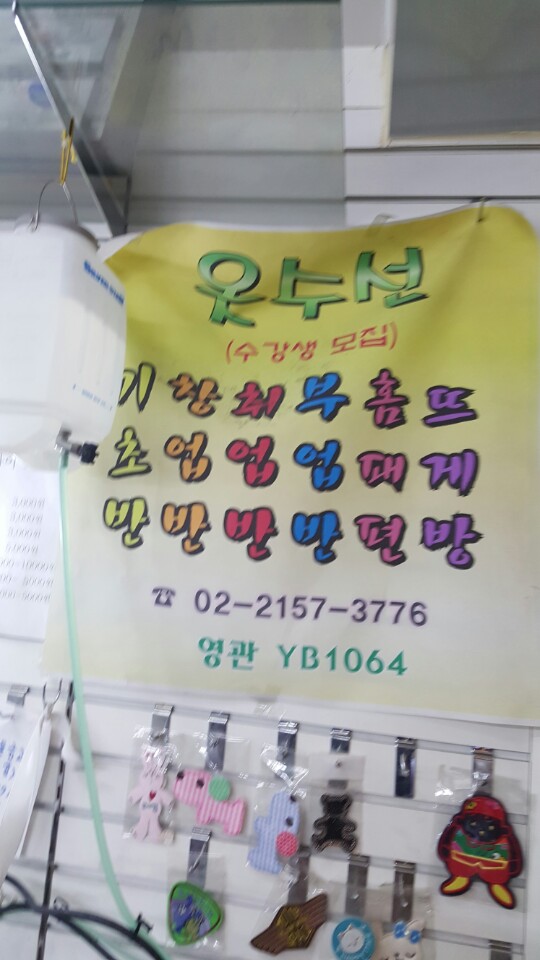 옷수선
(수강생 모집)
기 창 취 부 홈 뜨
초 업 업 업 패 게
반 반 반 반 편 방
☎ 02-2157-3776
영관 YB1064